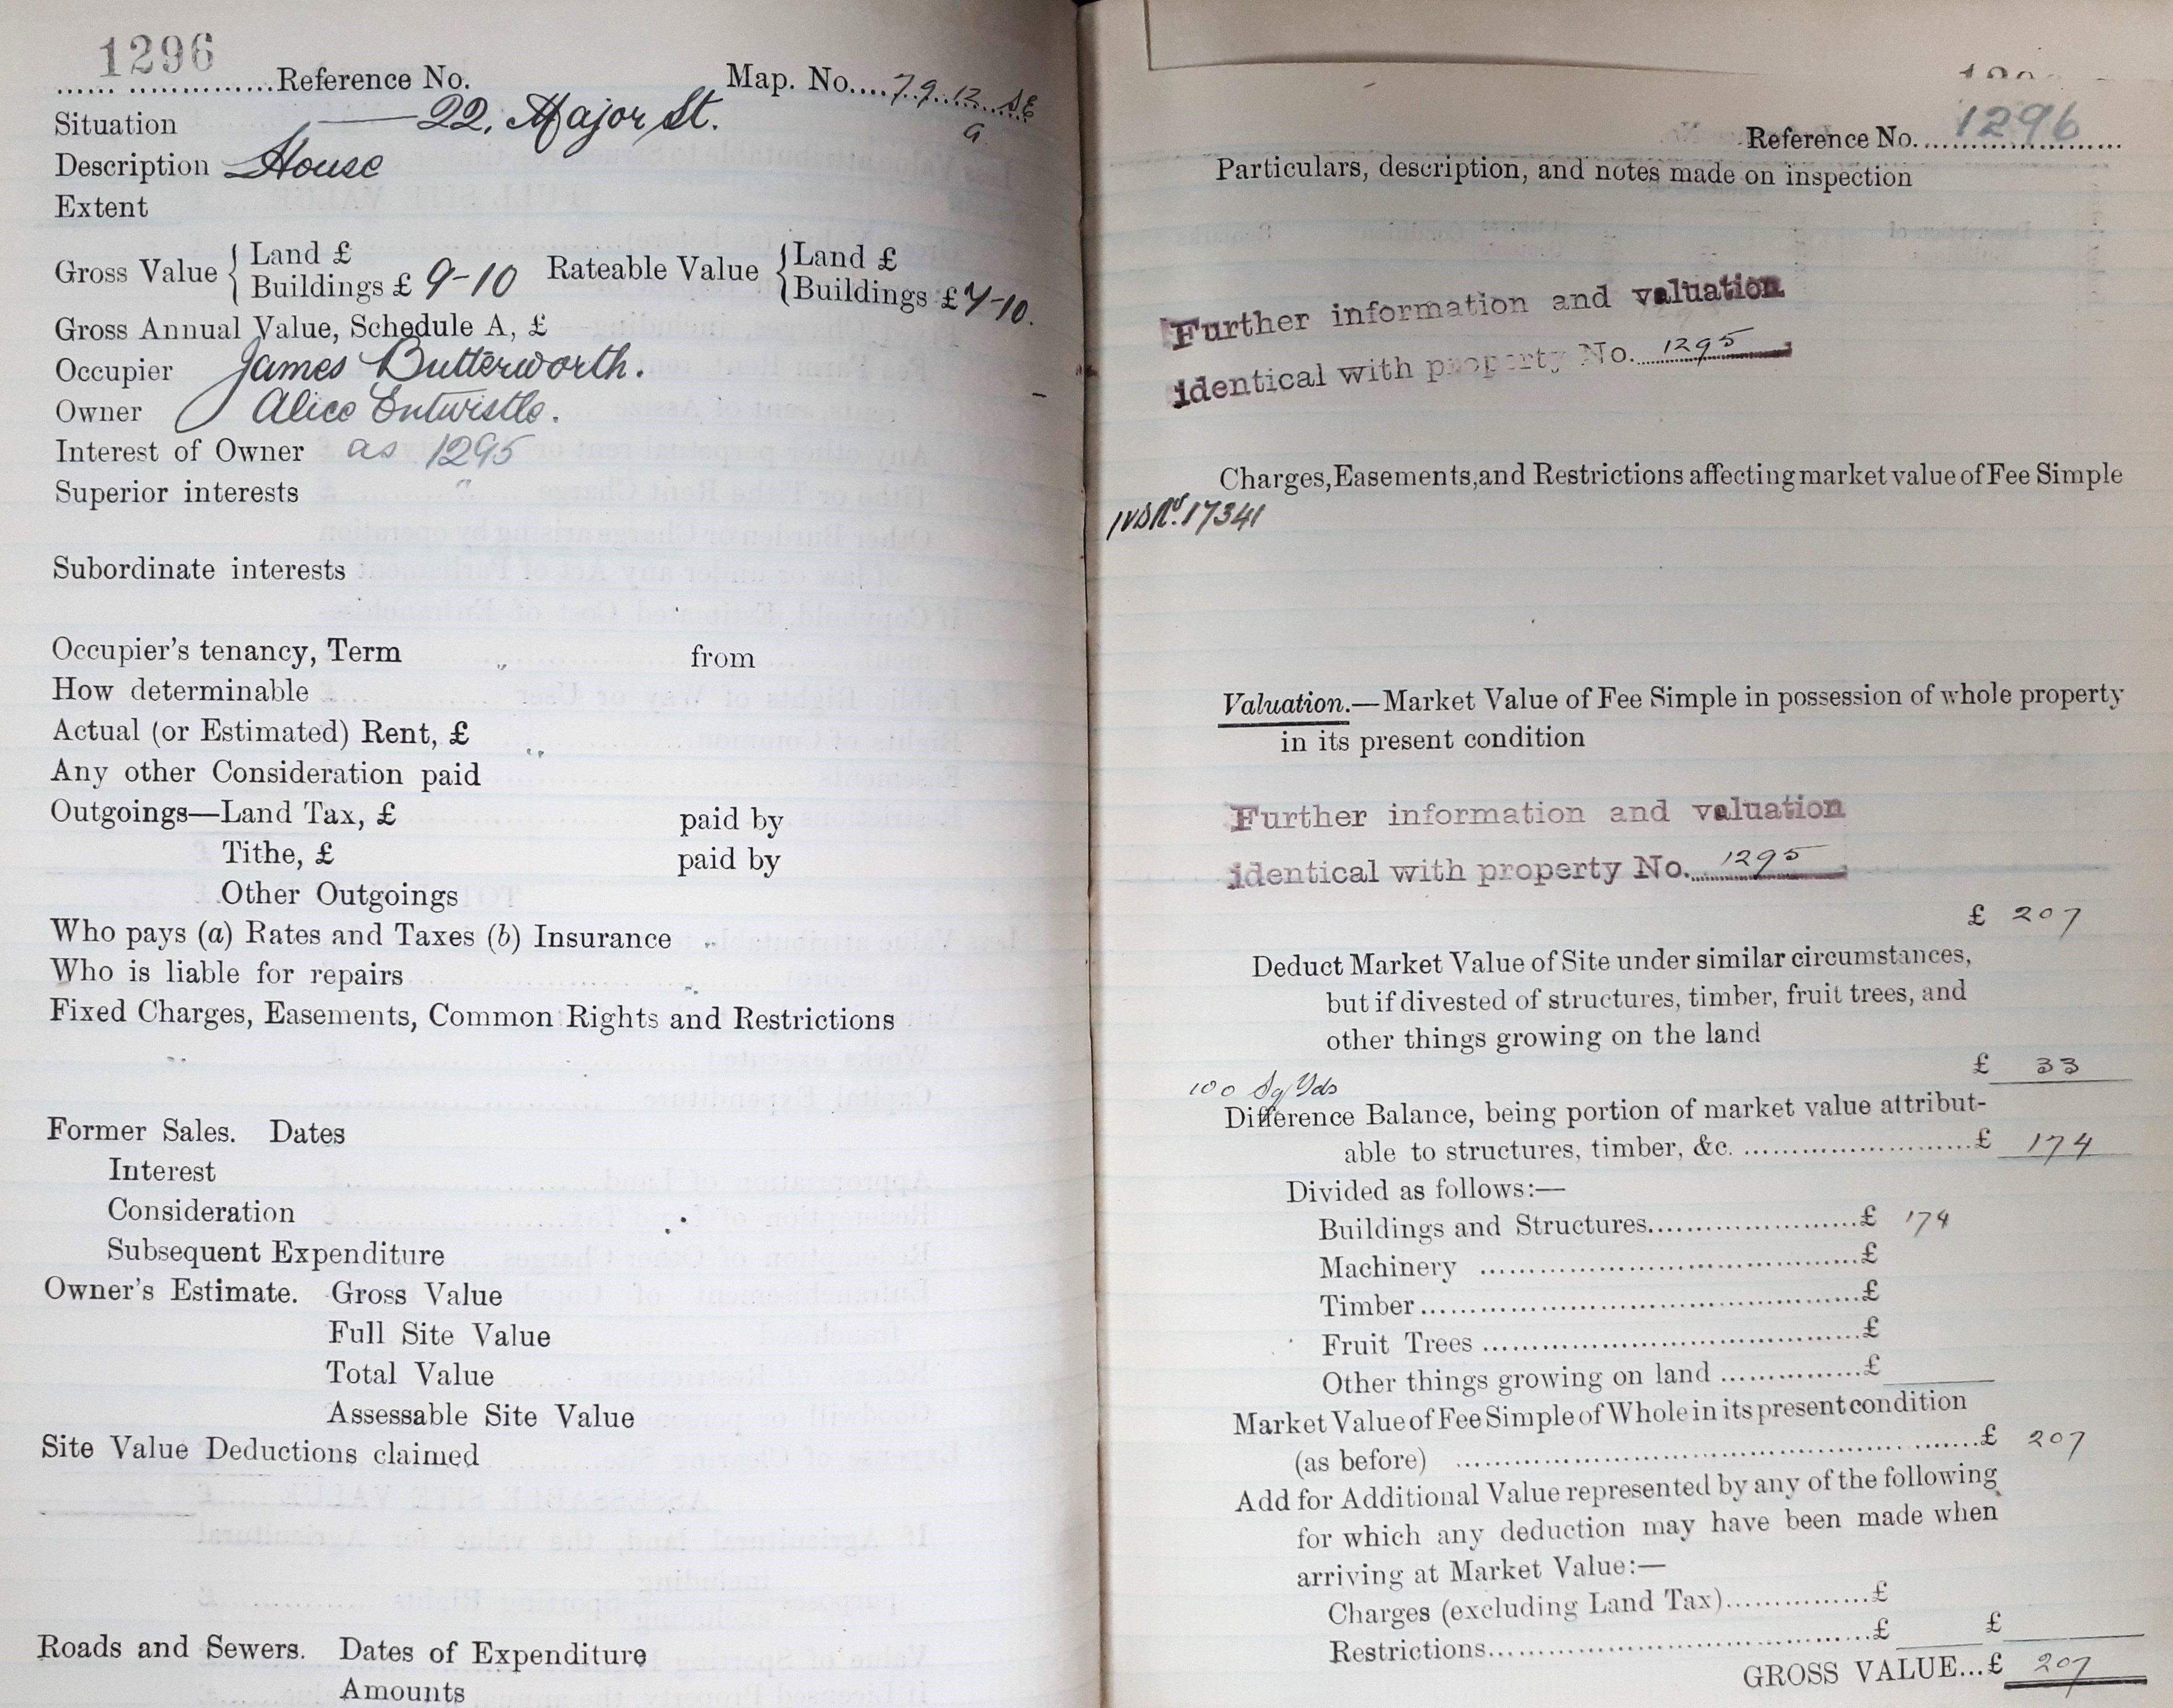 1296
...... ..............Reference No.
Map. No....79.12...SE
a
Situation ——22, Major St.
Description House
Extent
Gross Value { Land £
Buildings £ 9-10
Rateable Value { Land £
Buildings £ 7-10.
Gross Annual Value, Schedule A, £
Occupier James Butterworth.
Owner Alice Entwistle.
Interest of Owner as 1295
Superior interests "
Subordinate interests
Occupier's tenancy, Term " from
How determinable
Actual (or Estimated) Rent, £
Any other Consideration paid "
Outgoings—Land Tax, £ paid by
Tithe, £ paid by
Other Outgoings
Who pays (a) Rates and Taxes (b) Insurance "
Who is liable for repairs "
Fixed Charges, Easements, Common Rights and Restrictions
"
Former Sales. Dates
Interest
Consideration
Subsequent Expenditure
Owner's Estimate. Gross Value
Full Site Value
Total Value
Assessable Site Value
Site Value Deductions claimed
Roads and Sewers. Dates of Expenditure
Amounts
Reference No. 1296
Particulars, description, and notes made on inspection
Further information and valuation
identical with property No. 1295
Charges, Easements, and Restrictions affecting market value of Fee Simple
17341
Valuation.—Market Value of Fee Simple in possession of whole property
in its present condition
Further information and valuation
identical with property No. 1295
£ 207
Deduct Market Value of Site under similar circumstances,
but if divested of structures, timber, fruit trees, and
other things growing on the land
£ 33
100 Sq Yds
Difference Balance, being portion of market value attribut-
able to structures, timber, &c. ........................£ 174
Divided as follows:—
Buildings and Structures......................£ 174
Machinery ......................................£
Timber............................................£
Fruit Trees ......................................£
Other things growing on land ...............£
Market Value of Fee Simple of Whole in its present condition
(as before) ......................................................£ 207
Add for Additional Value represented by any of the following
for which any deduction may have been made when
arriving at Market Value:—
Charges (excluding Land Tax)...............£
Restrictions.......................................£ £
GROSS VALUE...£ 207